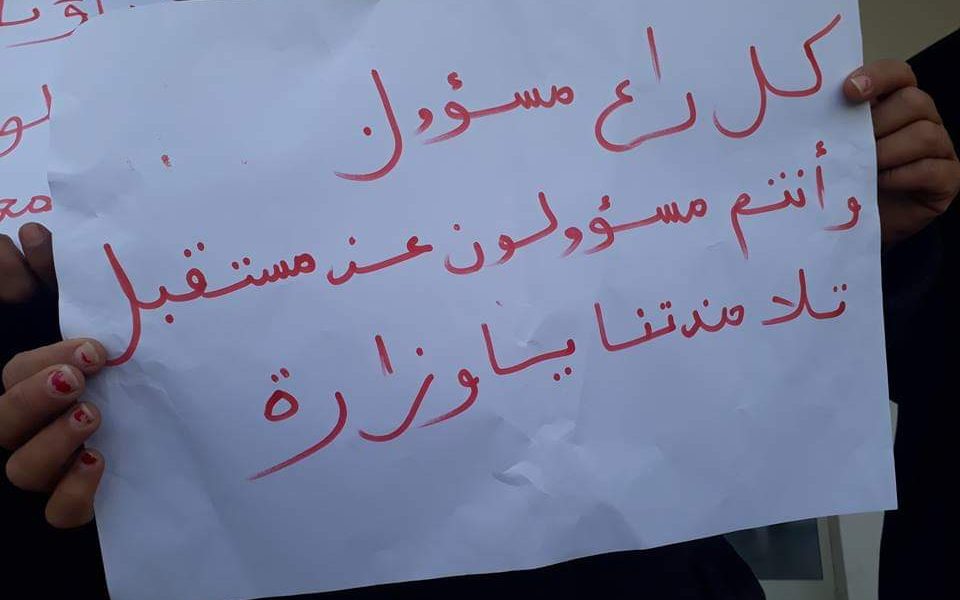 كل راع مسؤول
وأنتم مسؤولون عن مستقبل
تلامذتنا يا وزارة